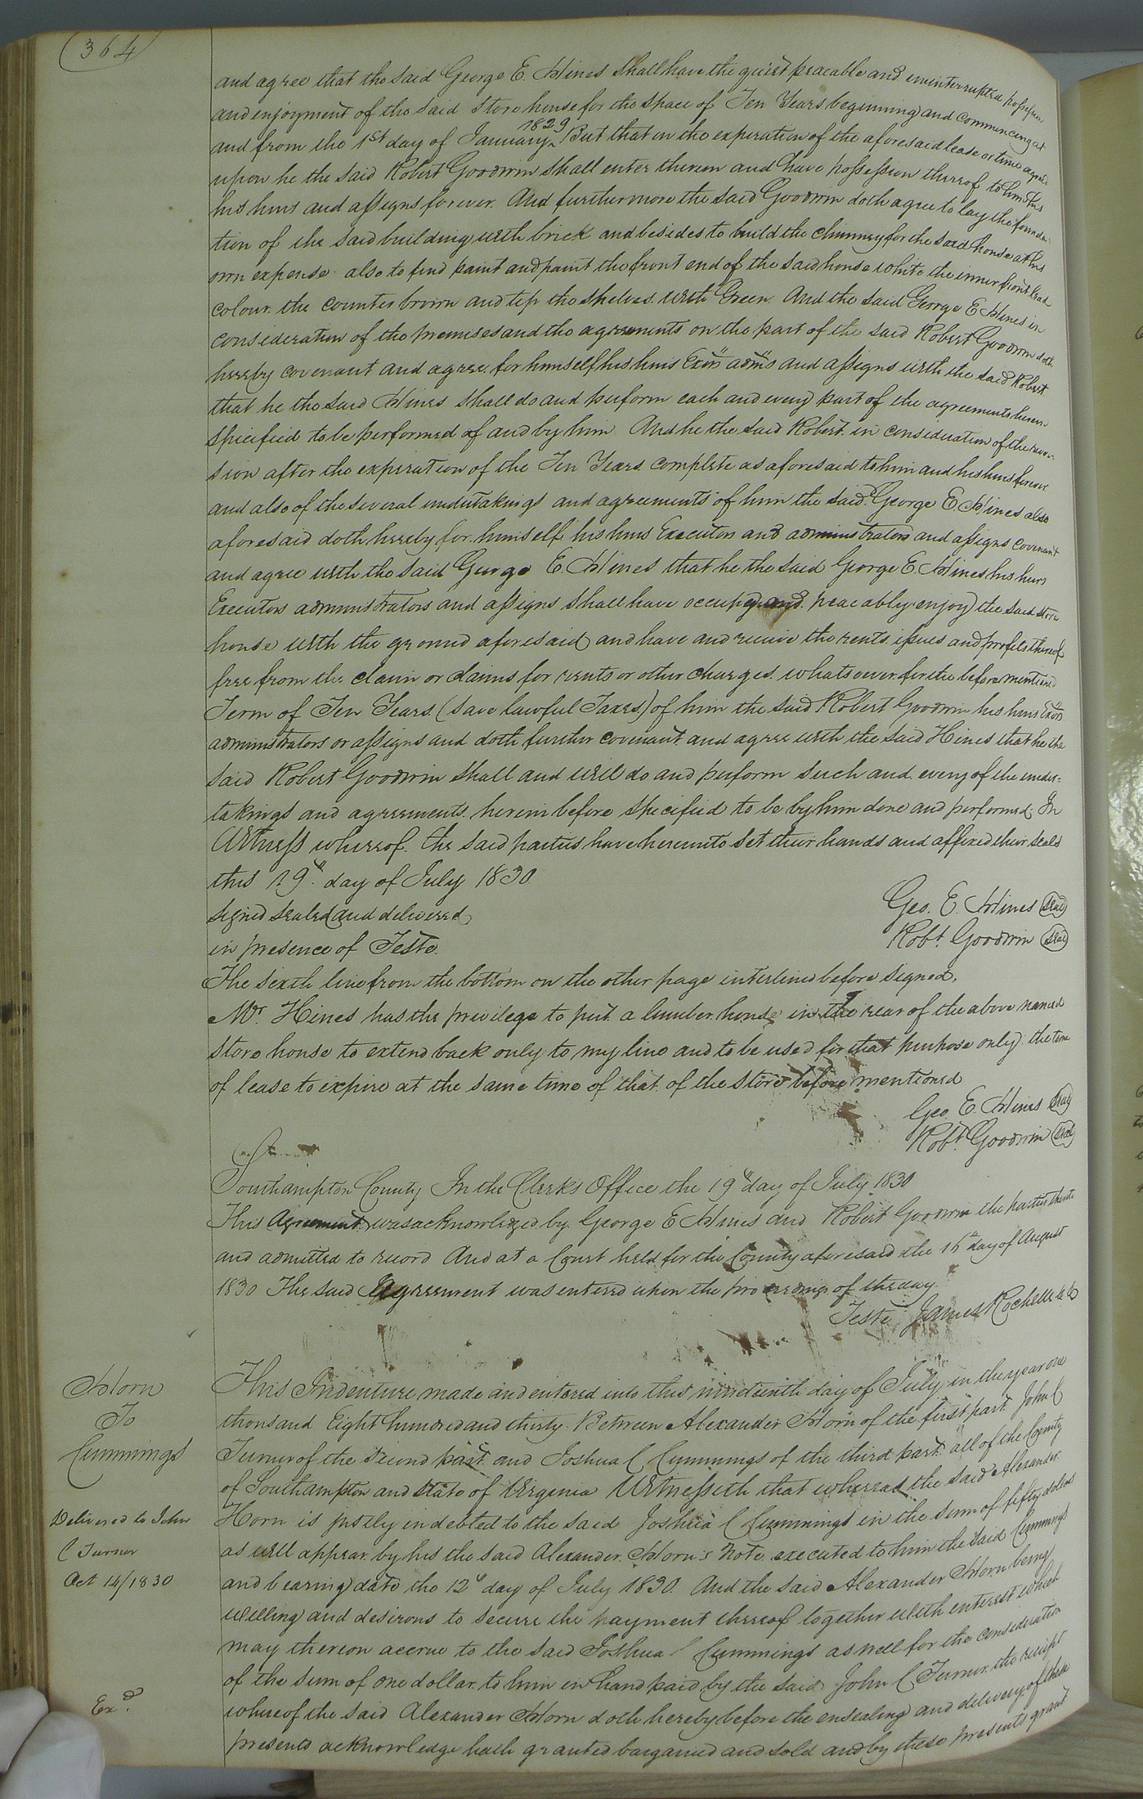 364
and agree that the said George E. Hines shall have the quiet peacable and uninterrupted possession
and enjoyment of the said Store house for the space of Ten Years beginning and commencing at
and from the 1st day of January 1829 But that on the expiration of the aforesaid lease or time
upon he the said Robert Goodwin shall enter thereon and have possession thereof to him his
his heirs and assigns forever. And furthermore the said Goodwin doth agree to lay the founda
tion of the said building with brick and besides to build the chimney for the said house at his
own expense also to find paint and paint the front end of the said house white the inner front lead
colour the counter brown and tip the shelves with Green. And the said George E Hines in
consideration of the premises and the agreements on the part of the said Robert Goodwin doth
hereby covenant and agree for himself his heirs Exors adms and assigns with the said Robert
that he the said Hines shall do and perform each and every part of the agreements herein
specified to be performed of and by him And he the said Robert in consideration of the rever
sion after the expiration of the Ten Years complete as aforesaid to him and his heirs forever
and also of the several undertakings and agreements of him the said George E Hines also
aforesaid doth hereby for himself his heirs Executors and administrators and assigns covenant
and agree with the said George E. Hines that he the said George E. Hines his heirs
Executors administrators and assigns shall have occupy and peacably enjoy the said store
house with the ground aforesaid and have and receive the rents issues and profits thereof
free from the claim or claims for rents or other charges whatsoever for the before mentioned
Term of Ten Years (save lawful Taxes) of him the said Robert Goodwin his heirs Exors
administrators or assigns and doth further covenant and agree with the said Hines that he the
said Robert Goodwin shall and will do and perform such and every of the under=
takings and agreements herein before specified to be by him done and performed. In
Witness whereof the said parties have hereunto set their hands and affixed their seals
this 19th day of July 1830
Signed sealed and delivered Geo. E. Hines (Seal)
in presence of Teste. Robt Goodwin (Seal)
The sixth line from the bottom on the other page interlined before signed.
Mr. Hines has the privilege to put a lumber house in the rear of the above named
store house to extend back only to my line and to be used for that purpose only the time
of lease to expire at the same time of that of the store before mentioned
Geo E. Hines (Seal)
Robt Goodwin (Seal)
Southampton County In the Clerks Office the 19th day of July 1830
This Agreement was acknowledged by George E Hines and Robert Goodwin the parties thereto
and admitted to record And at a Court held for the County aforesaid the 16th day of August
1830 The said Agreement was entered upon the proceedings of the day
Teste James Rochelle
Horn
To
Cummings
Delivered to John
C Turner
Oct 14/1830
Exd.
This Indenture made and entered into this nineteenth day of July in the year one
thousand Eight hundred and thirty Between Alexander Horn of the first part John C
Turner of the Second part and Joshua C Cummings of the third part all of the County
of Southampton and State of Virginia Witnesseth that whereas the said Alexander
Horn is justly indebted to the said Joshua C Cummings in the sum of fifty dollars
as will appear by his the said Alexander Horn's Note executed to him the said Cummings
and bearing date the 12th day of July 1830. And the said Alexander Horn being
willing and desirous to secure the payment thereof together with interest what
may thereon accrue to the said Joshua C Cummings as well for the consideration
of the sum of one dollar to him in hand paid by the said John C Turner the receipt
whereof the said Alexander Horn doth hereby before the ensealing and delivery of these
presents acknowledge hath granted bargained and sold and by these presents grant